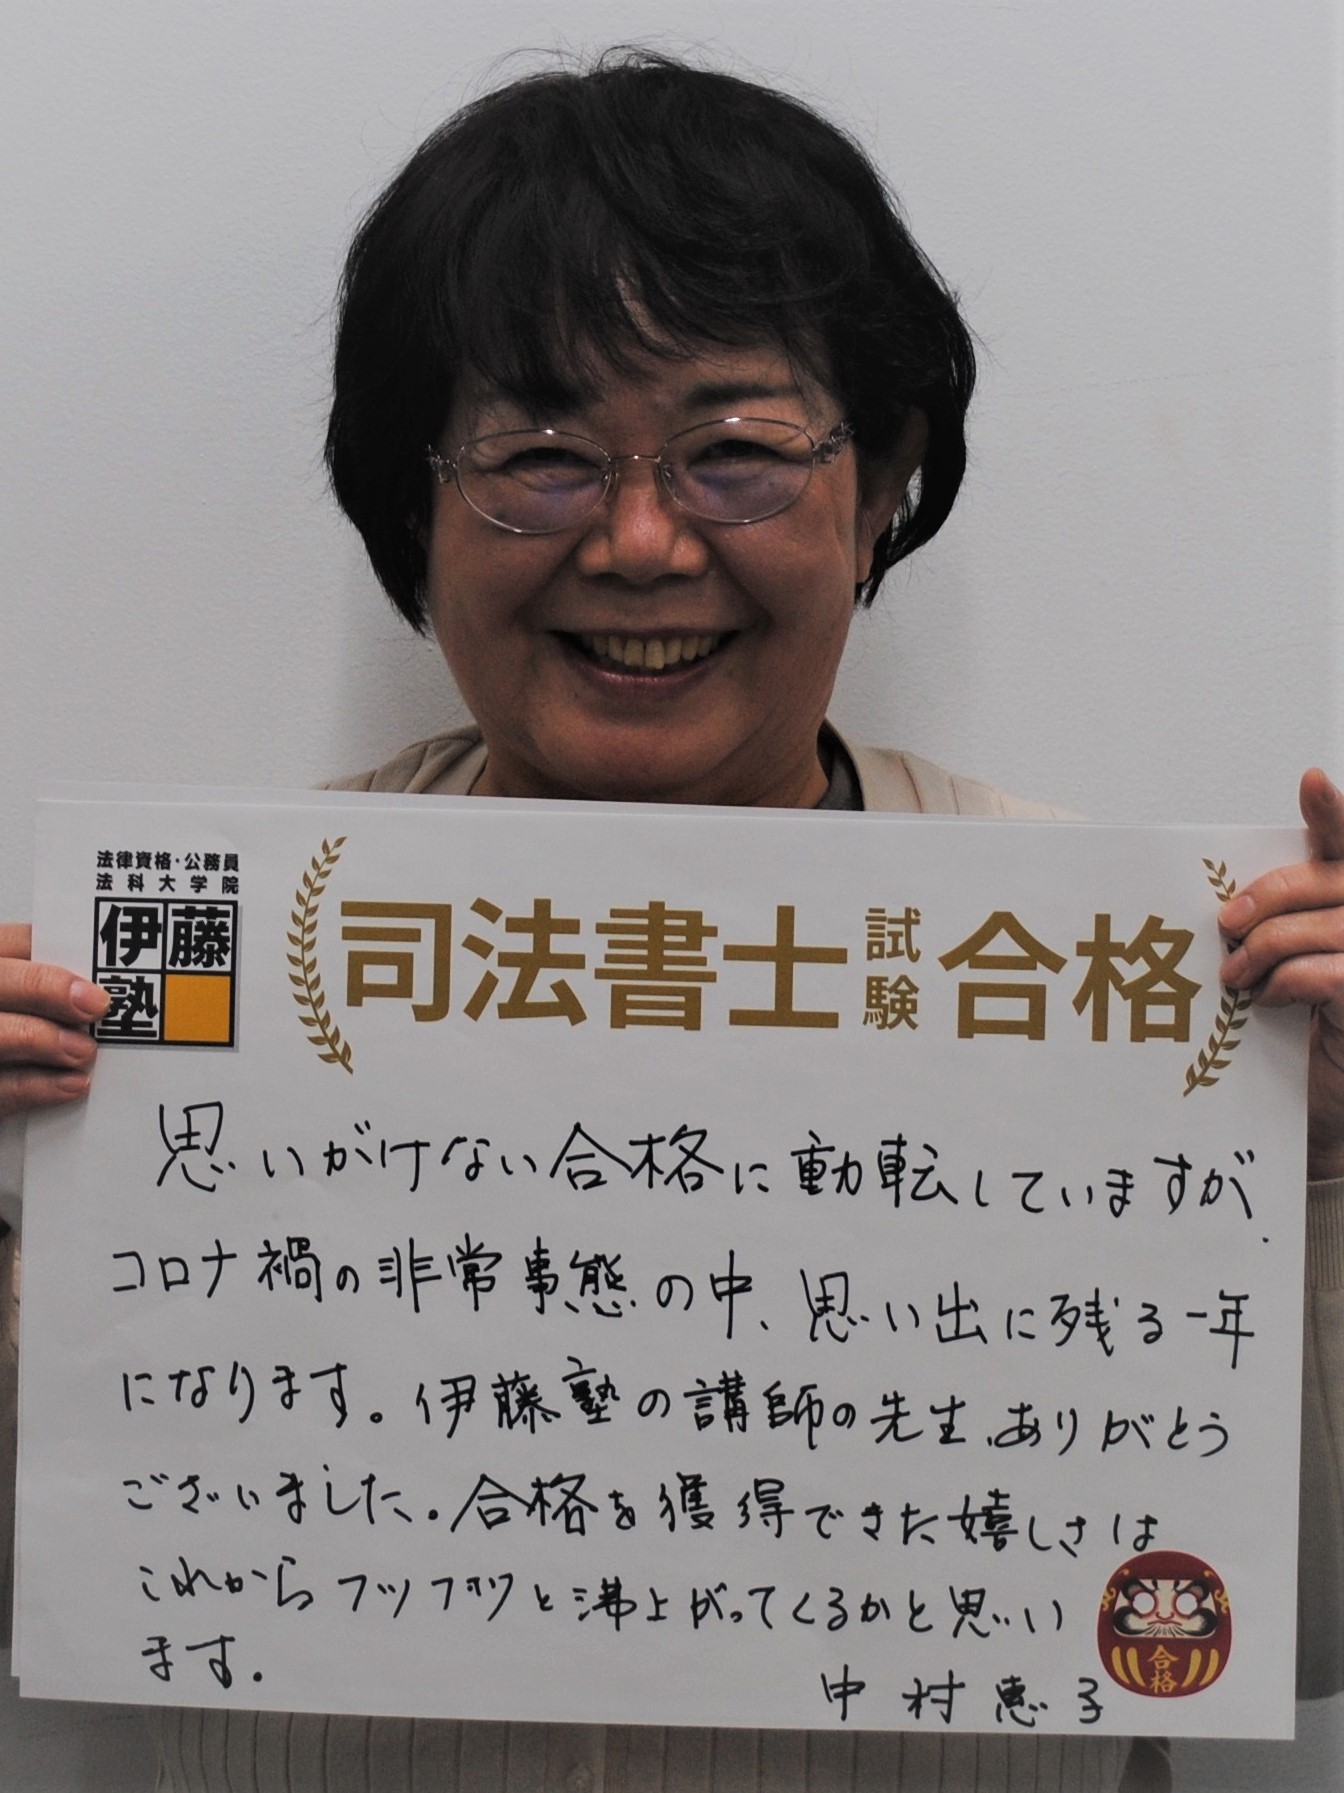 法律資格・公務員
法科大学院
伊藤
塾
司法書士試験合格
思いがけない合格に動転していますが、
コロナ禍の非常事態の中、思い出に残る一年
になります。伊藤塾の講師の先生、ありがとう
ございました。合格を獲得できた嬉しさは
これからフツフツと沸上がってくるかと思い
ます。
中村恵子
合格